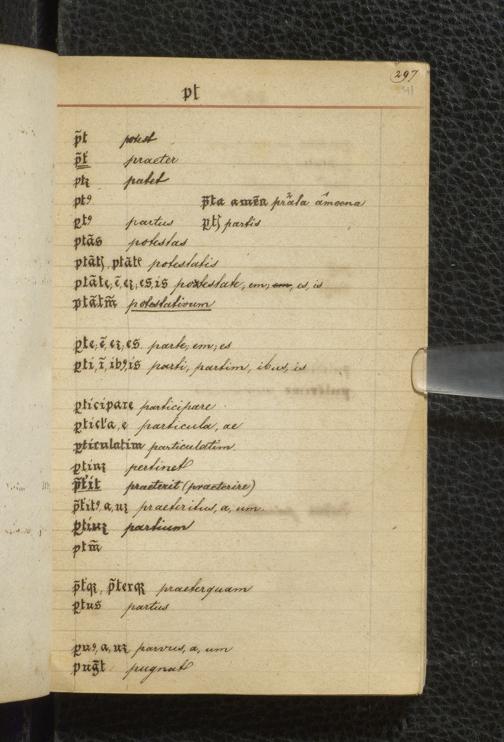 297
41
pt
p̃t potest
p̃t praeter
ptꝫ patet
ptꝰ p̃ta amẽa prāta āmoena
ꝑtꝰ partus ꝑtꝭ partis
ptãs potestas
ptãtꝭ, ptãte potestatis
ptãte, ẽ, eꝫ, es, is potestate, em, em, es, is
ptãtm̃ potestativum
ꝑte, ẽ, eꝫ, es. parte, em, es
ꝑti, ĩ, ibꝰ, is parti, partim, ibus, is
ꝑticipare participare
ꝑticl'a, e particula, ae
ꝑticulatim particulatim
ꝑtinꝫ pertinet
p̃t'it praeterit (praeterire)
p̃t'itꝰ, a, uꝫ praeteritus, a, um
ꝑtiuꝫ partium
ptm̃
p̃tqꝫ, p̃terqꝫ praeterquam
ꝑtus partus
ꝑuꝰ, a, uꝫ parvus, a, um
pug̃t pugnat